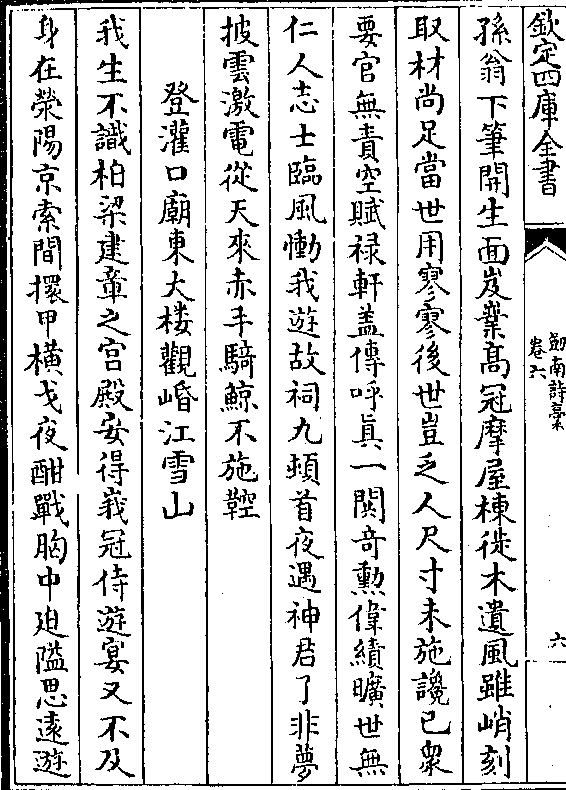 欽定四庫全書
劒南詩藁
卷六
六
孫翁下筆開生面岌嶪髙冠摩屋棟徙木遺風雖峭刻
取材尚足當世用寥寥後世豈乏人尺寸未施讒已衆
要官無責空賦禄軒盖傳呼真一閧竒勲偉績曠世無
仁人志士臨風慟我遊故祠九頓首夜遇神君了非夢
披雲激電從天來赤手騎鯨不施鞚
登灌口廟東大楼觀崏江雪山
我生不識柏梁建章之宫殿安得峩冠侍遊宴又不及
身在滎陽京索間擐甲横戈夜酣戰胸中廹隘思逺遊